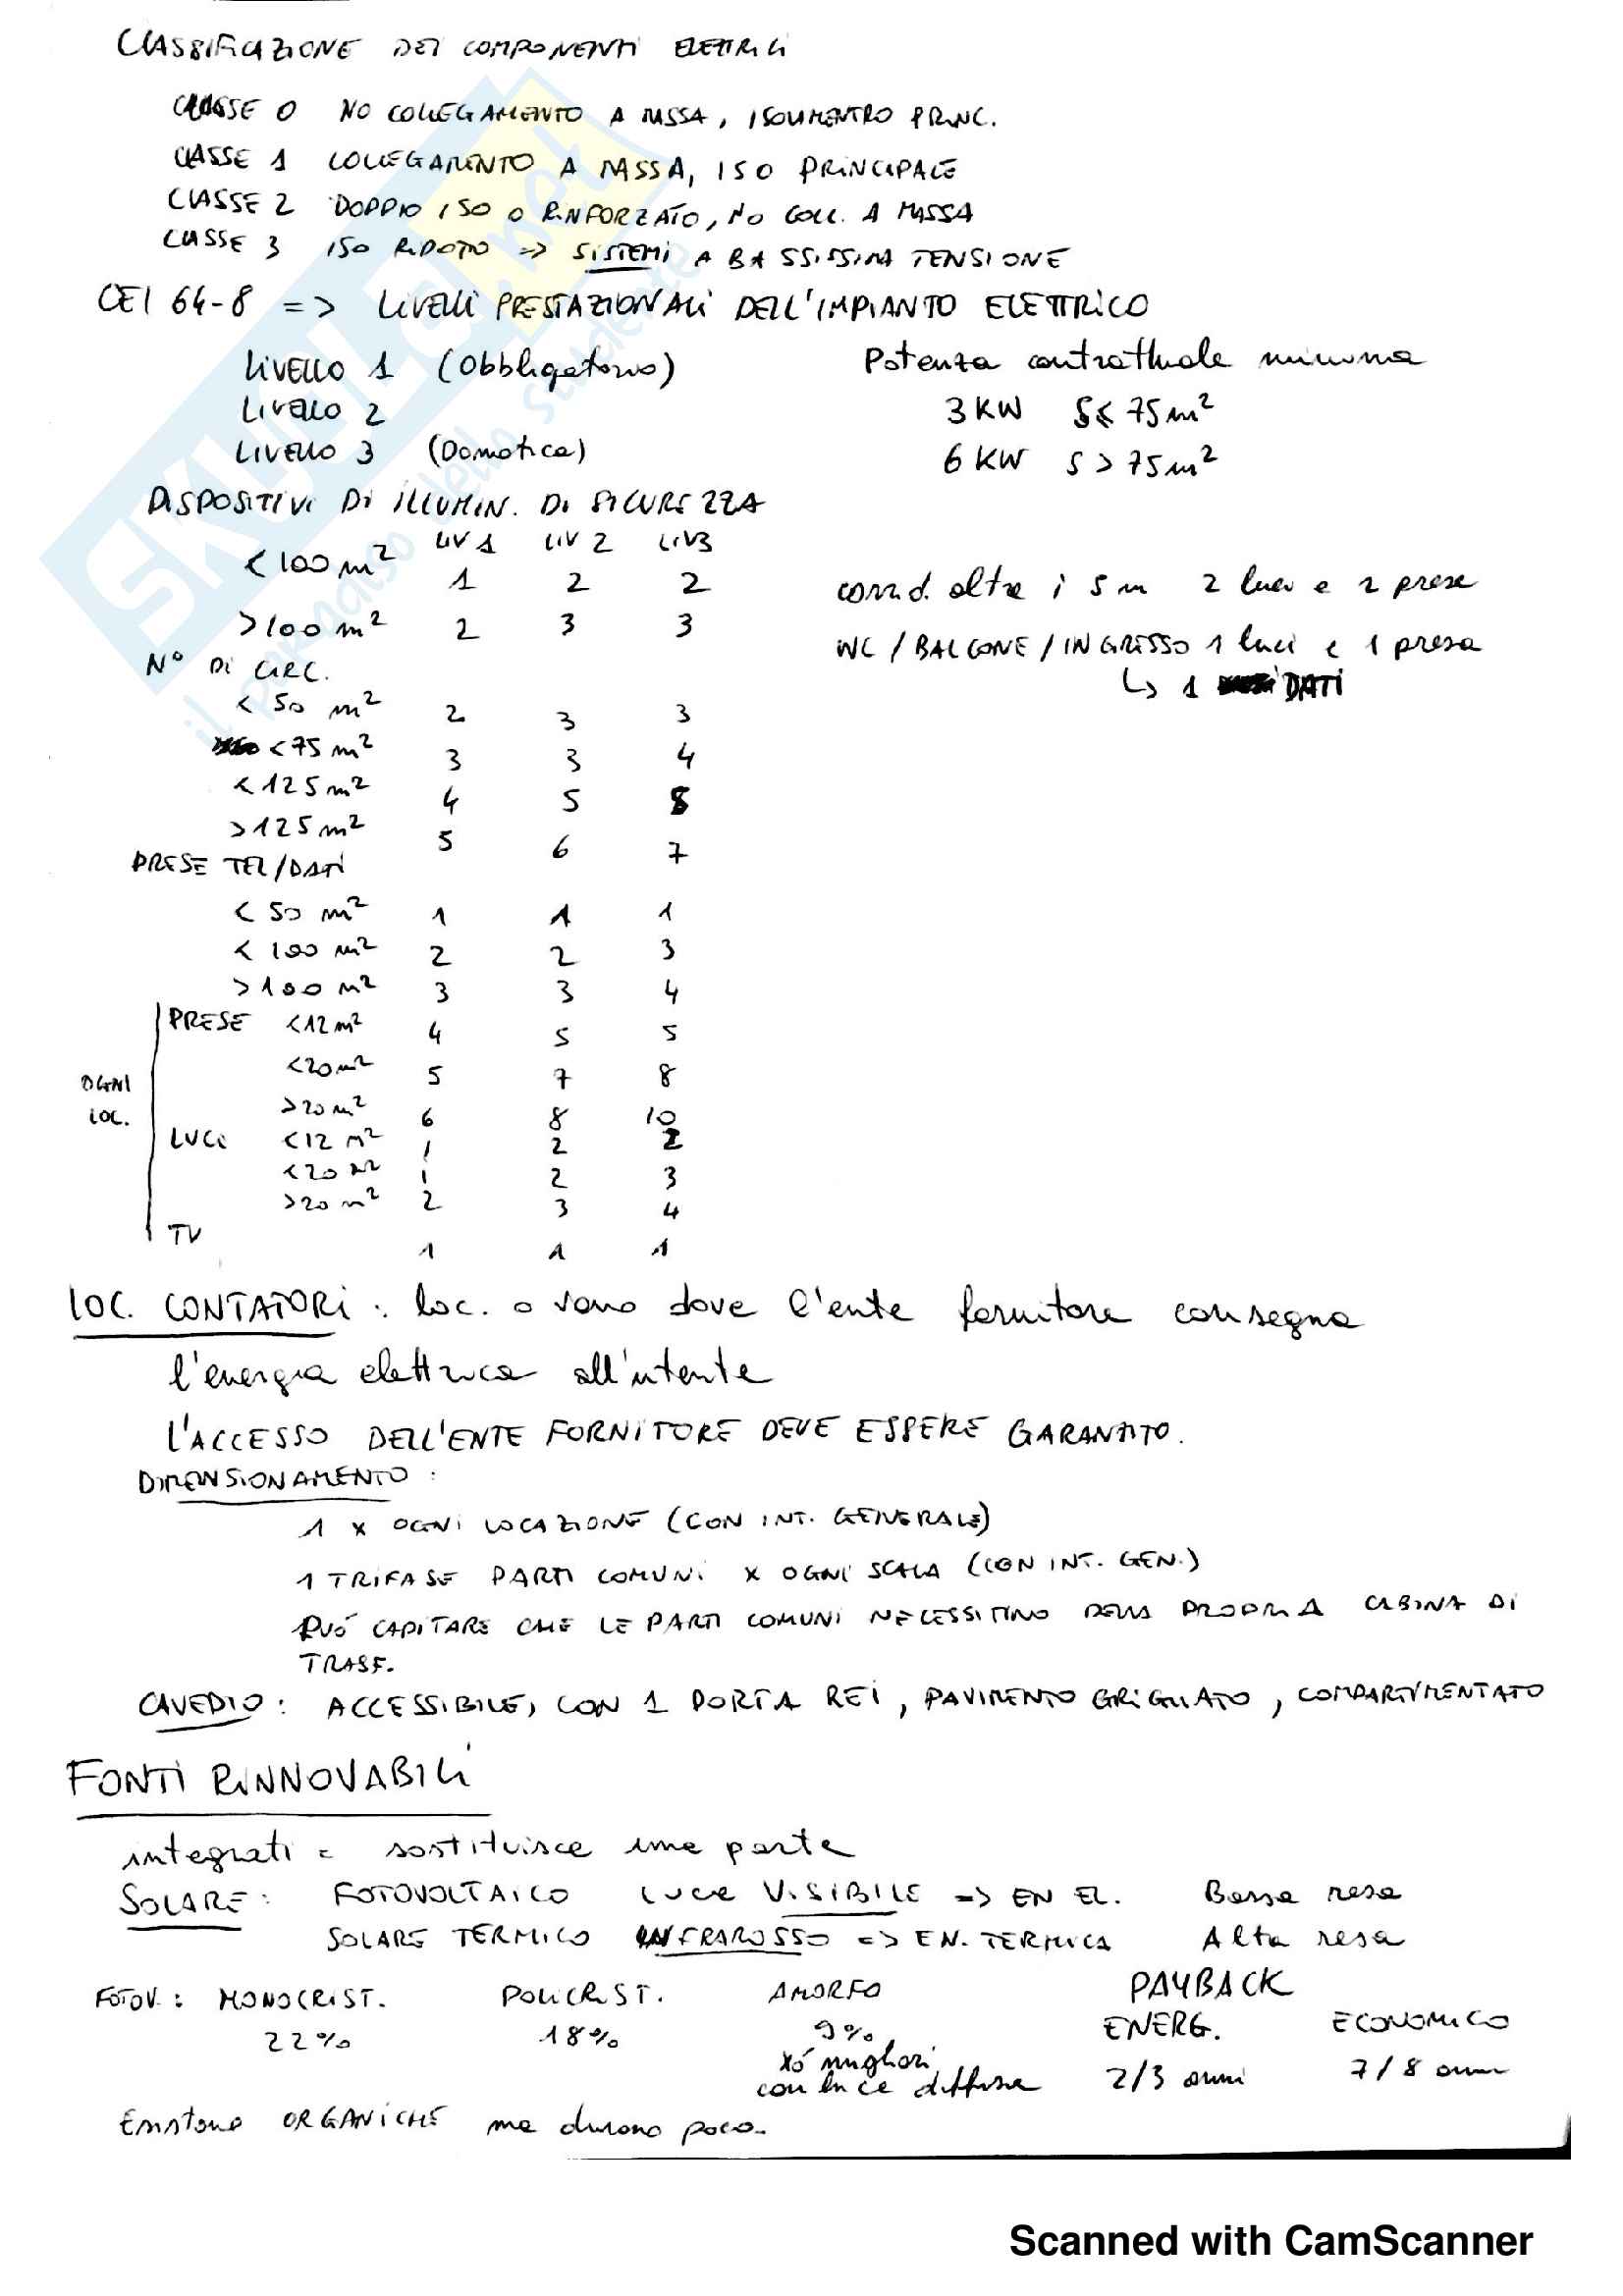 CLASSIFICAZIONE DEI COMPONENTI ELETTRICI
CLASSE 0 NO COLLEGAMENTO A MASSA, ISOLAMENTO PRINC.
CLASSE 1 COLLEGAMENTO A MASSA, ISO PRINCIPALE
CLASSE 2 DOPPIO ISO O RINFORZATO, NO COLL. A MASSA
CLASSE 3 ISO RIDOTTO => SISTEMI A BASSISSIMA TENSIONE
CEI 64-8 => LIVELLI PRESTAZIONALI DELL'IMPIANTO ELETTRICO
LIVELLO 1 (Obbligatorio) Potenza contrattuale minima
LIVELLO 2 3 KW S≤ 75 m²
LIVELLO 3 (Domotica) 6 KW S > 75 m²
DISPOSITIVI DI ILLUMIN. DI SICUREZZA
LIV 1 LIV 2 LIV3
< 100 m² 1 2 2 corrid. oltre i 5 m 2 luci e 2 prese
>100 m² 2 3 3 WC / BALCONE / INGRESSO 1 luci e 1 presa
N° DI CIRC. ↳ 1 DATI
< 50 m² 2 3 3
< 75 m² 3 3 4
< 125 m² 4 5 5
>125 m² 5 6 7
PRESE TEL/DATI
< 50 m² 1 1 1
< 100 m² 2 2 3
>100 m² 3 3 4
OGNI LOC.
PRESE <12 m² 4 5 5
<20 m² 5 7 8
>20 m² 6 8 10
LUCI <12 m² 1 2 2
<20 m² 1 2 3
>20 m² 2 3 4
TV 1 1 1
LOC. CONTATORI : loc. o vano dove l'ente fornitore consegna
l'energia elettrica all'utente
L'ACCESSO DELL'ENTE FORNITORE DEVE ESSERE GARANTITO.
DIMENSIONAMENTO :
1 x OGNI LOCAZIONE (CON INT. GENERALE)
1 TRIFASE PARTI COMUNI x OGNI SCALA (CON INT. GEN.)
PUÓ CAPITARE CHE LE PARTI COMUNI NECESSITINO DELLA PROPRIA CABINA DI
TRASF.
CAVEDIO : ACCESSIBILE, CON 1 PORTA REI, PAVIMENTO GRIGLIATO, COMPARTIMENTATO
FONTI RINNOVABILI
integrati = sostituisce una parte
SOLARE : FOTOVOLTAICO LUCE VISIBILE => EN EL. Bassa resa
SOLARE TERMICO INFRAROSSO => EN. TERMICA Alta resa
FOTOV. : MONOCRIST. POLICRIST. AMORFO PAYBACK
22% 18% 9% ENERG. ECONOMICO
xó migliori
con luce diffusa 2/3 anni 7/8 anni
Esistono ORGANICHE ma durano poco.
SKUOLA.net
il paradiso dello studente
Scanned with CamScanner